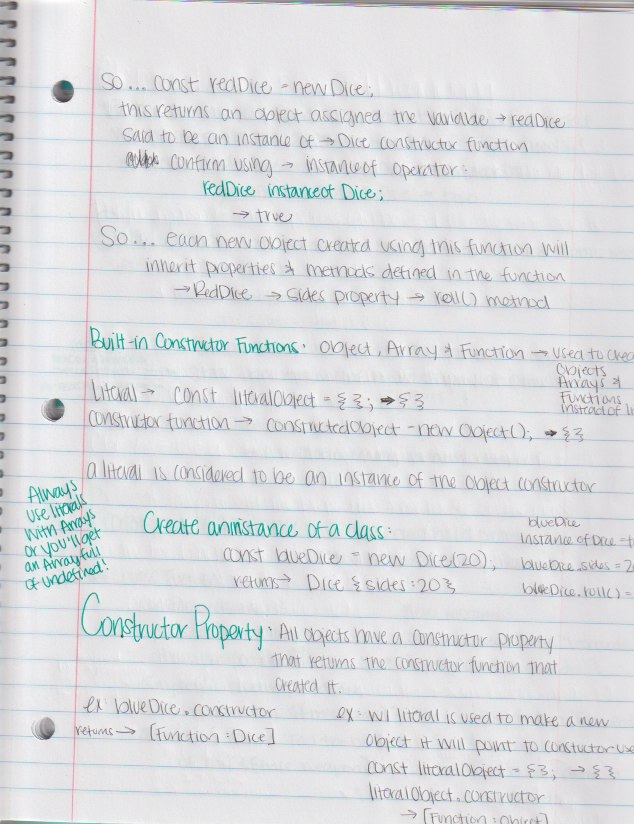 So... const redDice = new Dice;
this returns an object assigned the variable → redDice
said to be an instance of → Dice constructor function
confirm using → instanceof operator:
redDice instanceof Dice;
→ true
So... each new object created using this function will
inherit properties & methods defined in the function
→ RedDice → sides property → roll() method
Built-in Constructor Functions: Object, Array & Function → used to crea
Objects
Arrays &
Functions
instead of li
Literal → const literalObject = {}; → {}
constructor function → constructedObject = new Object(); → {}
a literal is considered to be an instance of the object constructor
Always
use literals
with Arrays
or you'll get
an Array full
of undefined!
Create an instance of a class:
const blueDice = new Dice(20);
returns → Dice {sides:20}
blueDice
instance of Dice = t
blueDice.sides = 2
blueDice.roll() =
Constructor Property: All objects have a constructor property
that returns the constructor function that
created it.
ex: blueDice.constructor
returns → [Function: Dice]
ex: w/ literal is used to make a new
object it will point to constuctor use
const literalObject = {}; → {}
literalObject.constructor
→ [Function: Object]